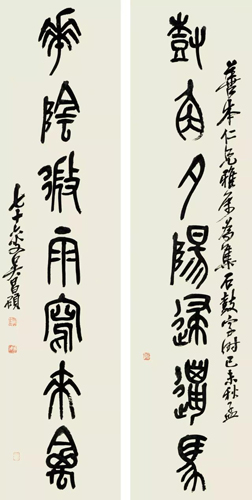 善本仁兄雅屬為集石鼓字時己未秋孟
角夕陽歸馬
陰微雨寫來禽
七十六叟吳昌碩